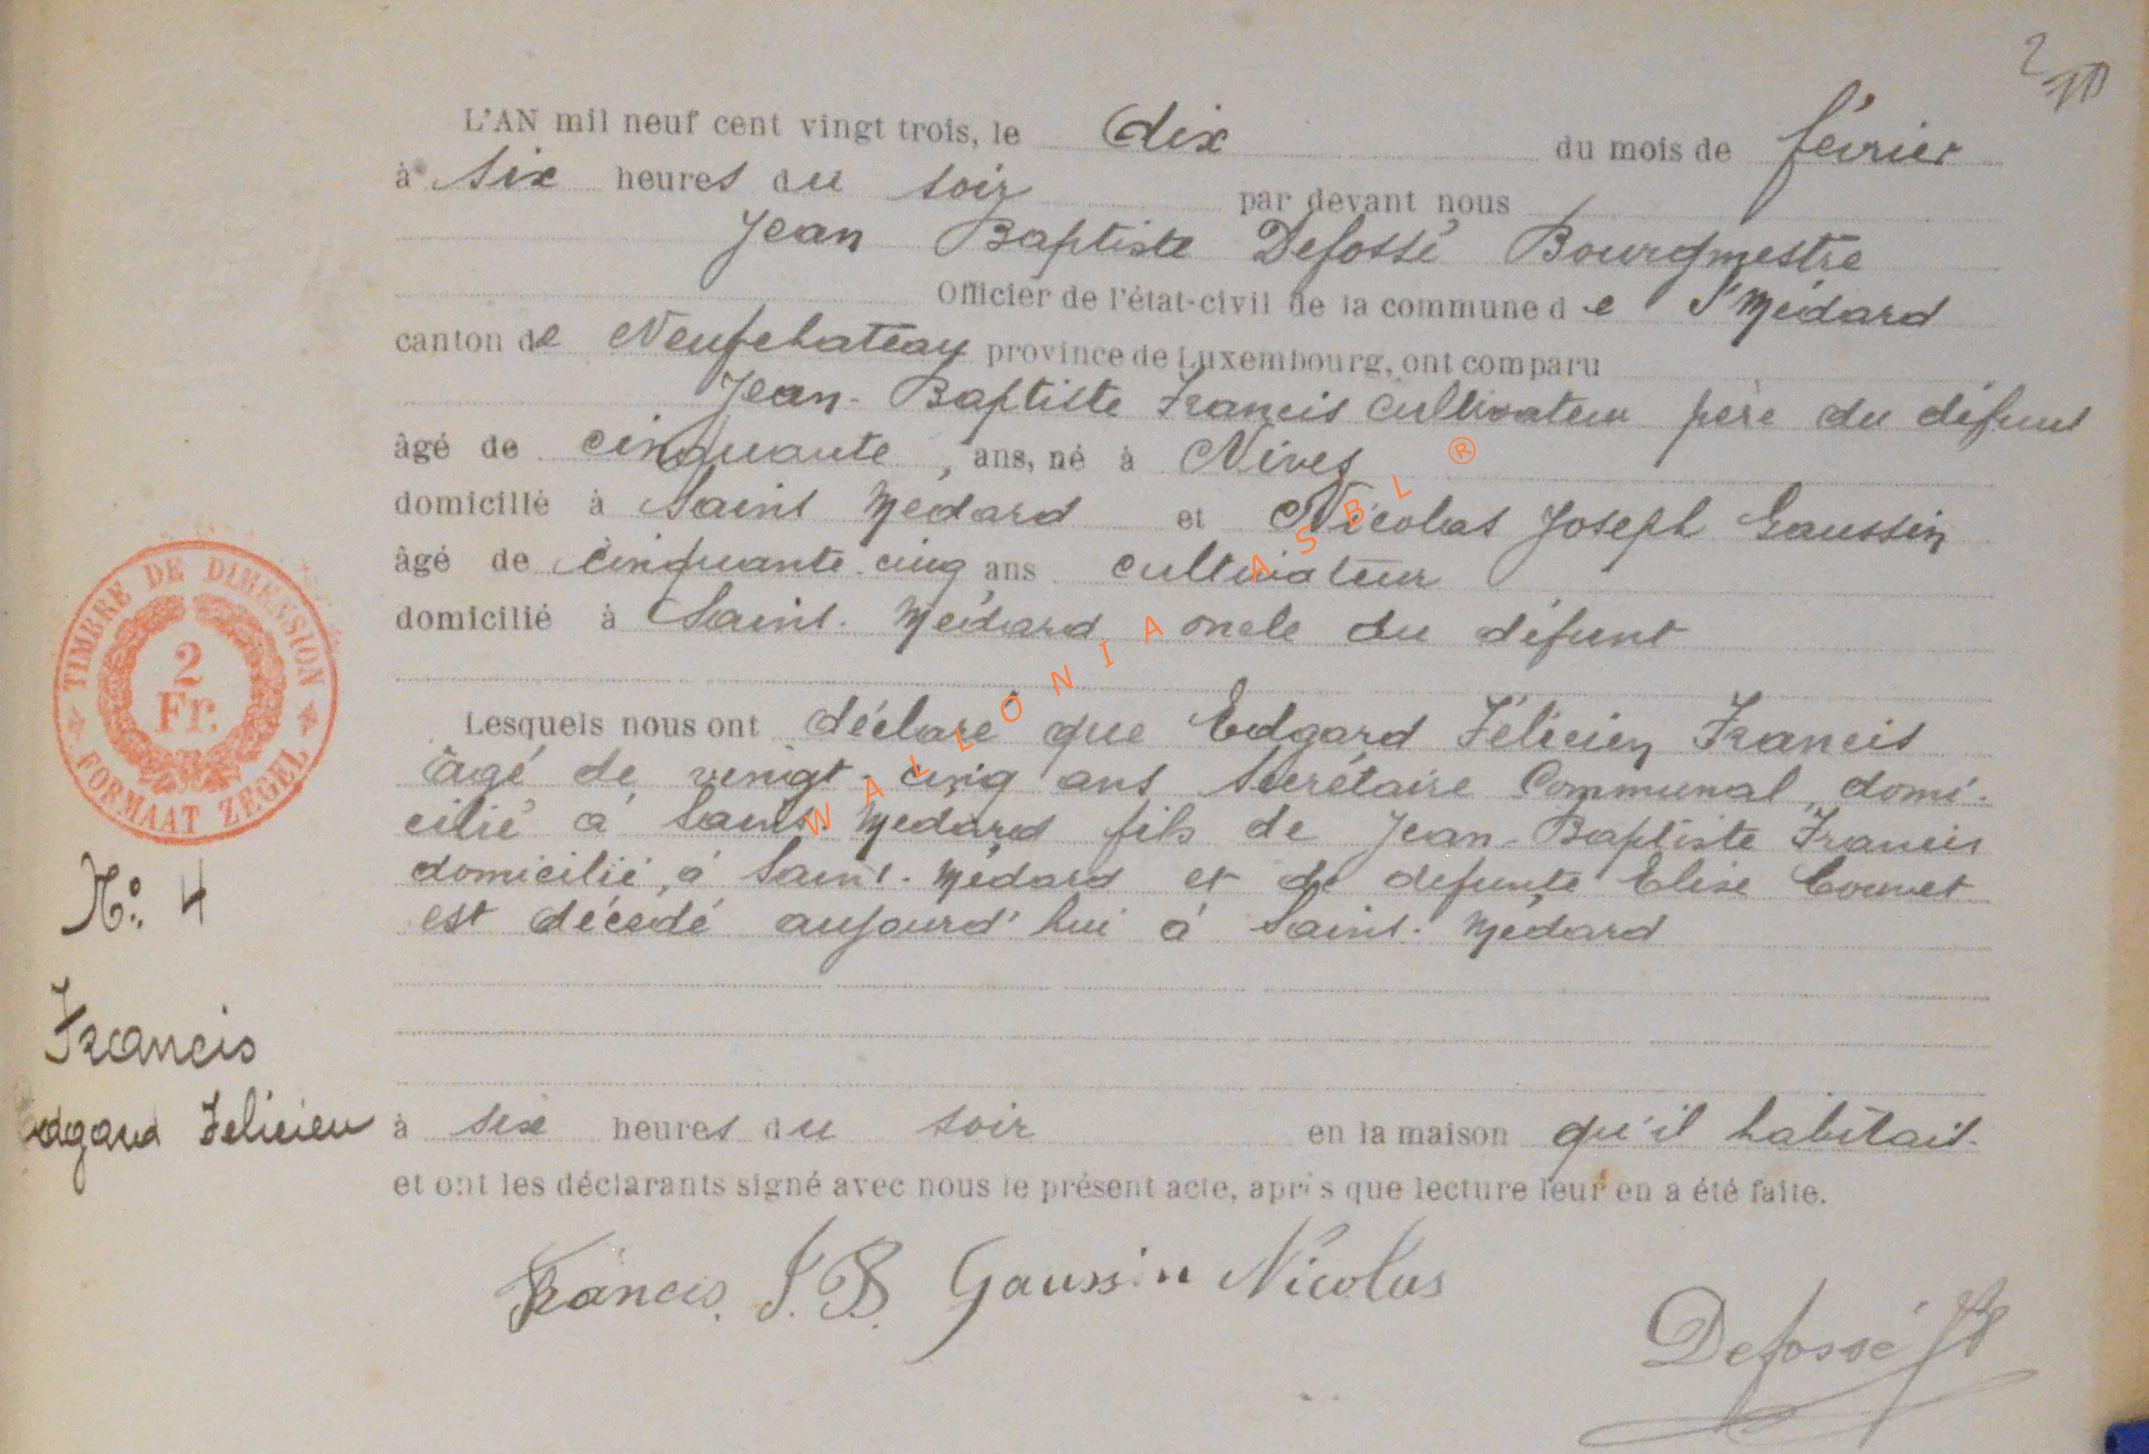 2
L'AN mil neuf cent vingt trois, le dix du mois de février
à six heures du soir par devant nous
Jean Baptiste Defossé Bourgmestre
Officier de l'état-civil de la commune de St Médard
canton de Neufchateau province de Luxembourg, ont comparu
Jean-Baptiste Francis cultivateur père du défunt
âgé de cinquante, ans, né à Nives
domicilié à Saint Médard et Nicolas Joseph Gaussin
âgé de cinquante-cinq ans cultivateur
domicilié à Saint-Médard oncle du défunt
Lesquels nous ont déclaré que Edgard Félicien Francis
âgé de vingt-cinq ans secrétaire communal, domi-
cilié à Saint-Médard fils de Jean-Baptiste Francis
domicilié, à Saint-Médard et de défunte Elise
est décédé aujourd'hui à Saint-Médard
à six heures du soir en la maison qu'il habitait.
et ont les déclarants signé avec nous le présent acte, après que lecture leur en a été faite.
Francis. J.B. Gaussin Nicolas
Defossé JB
TIMBRE DE DIMENSION
2
Fr.
FORMAAT ZEGEL
No: 4
Francis
dgard Félicien
WALLONIA ASBL ®